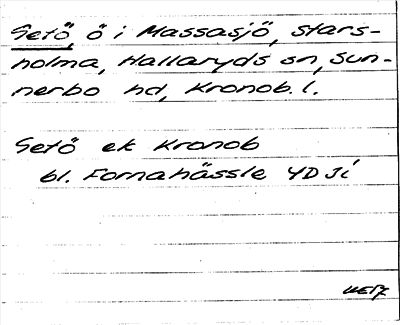 Getö, ö i Massasjö, stars-
holma, Hallaryds sn, Sun-
nerbo hd, Kronob. l.
Getö ek Kronob
bl. Fornahässle 4D Ji